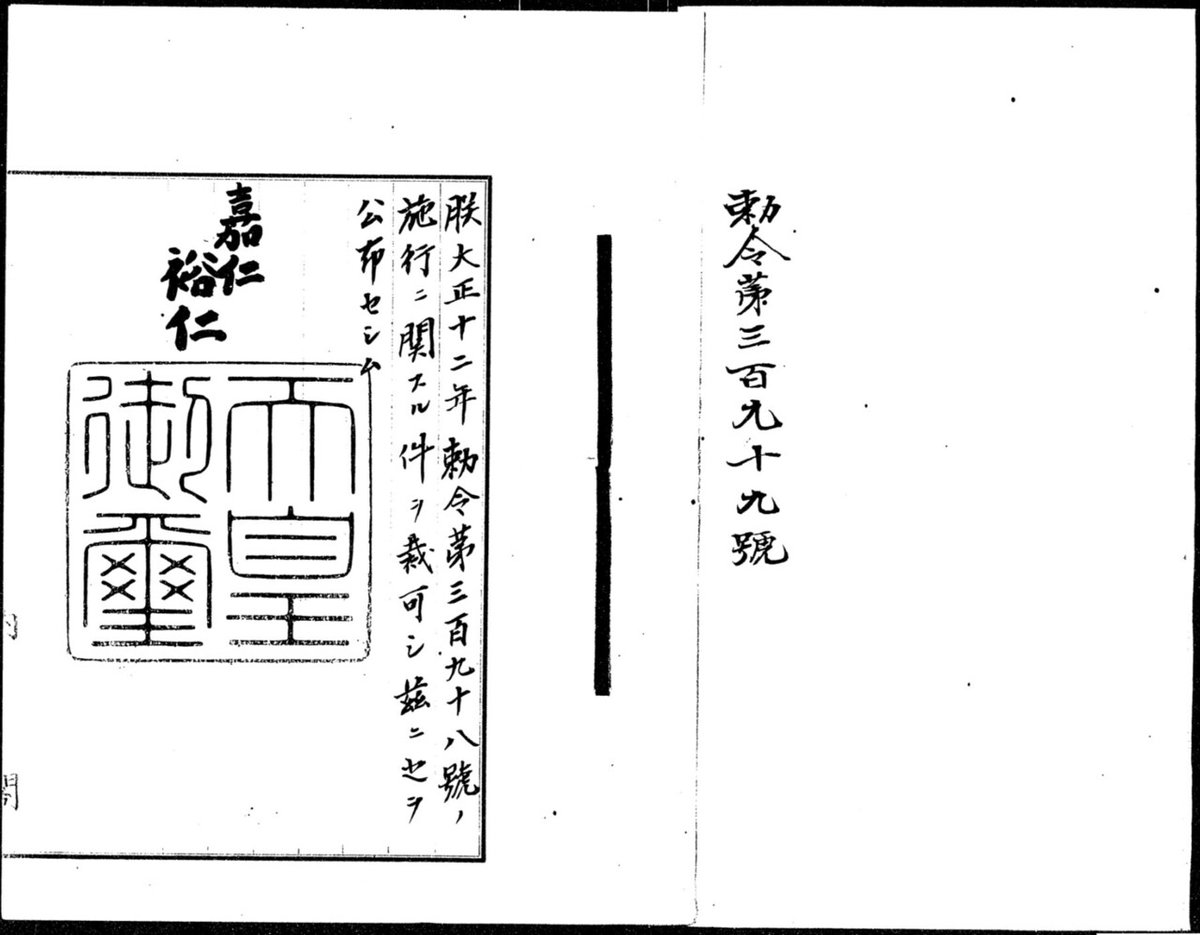 勅令第三百九十九號
朕大正十二年勅令第三百九十八號ノ
施行ニ関スル件ヲ裁可シ茲ニ之ヲ
公布セシム
嘉仁
裕仁
天皇
御璽
閣